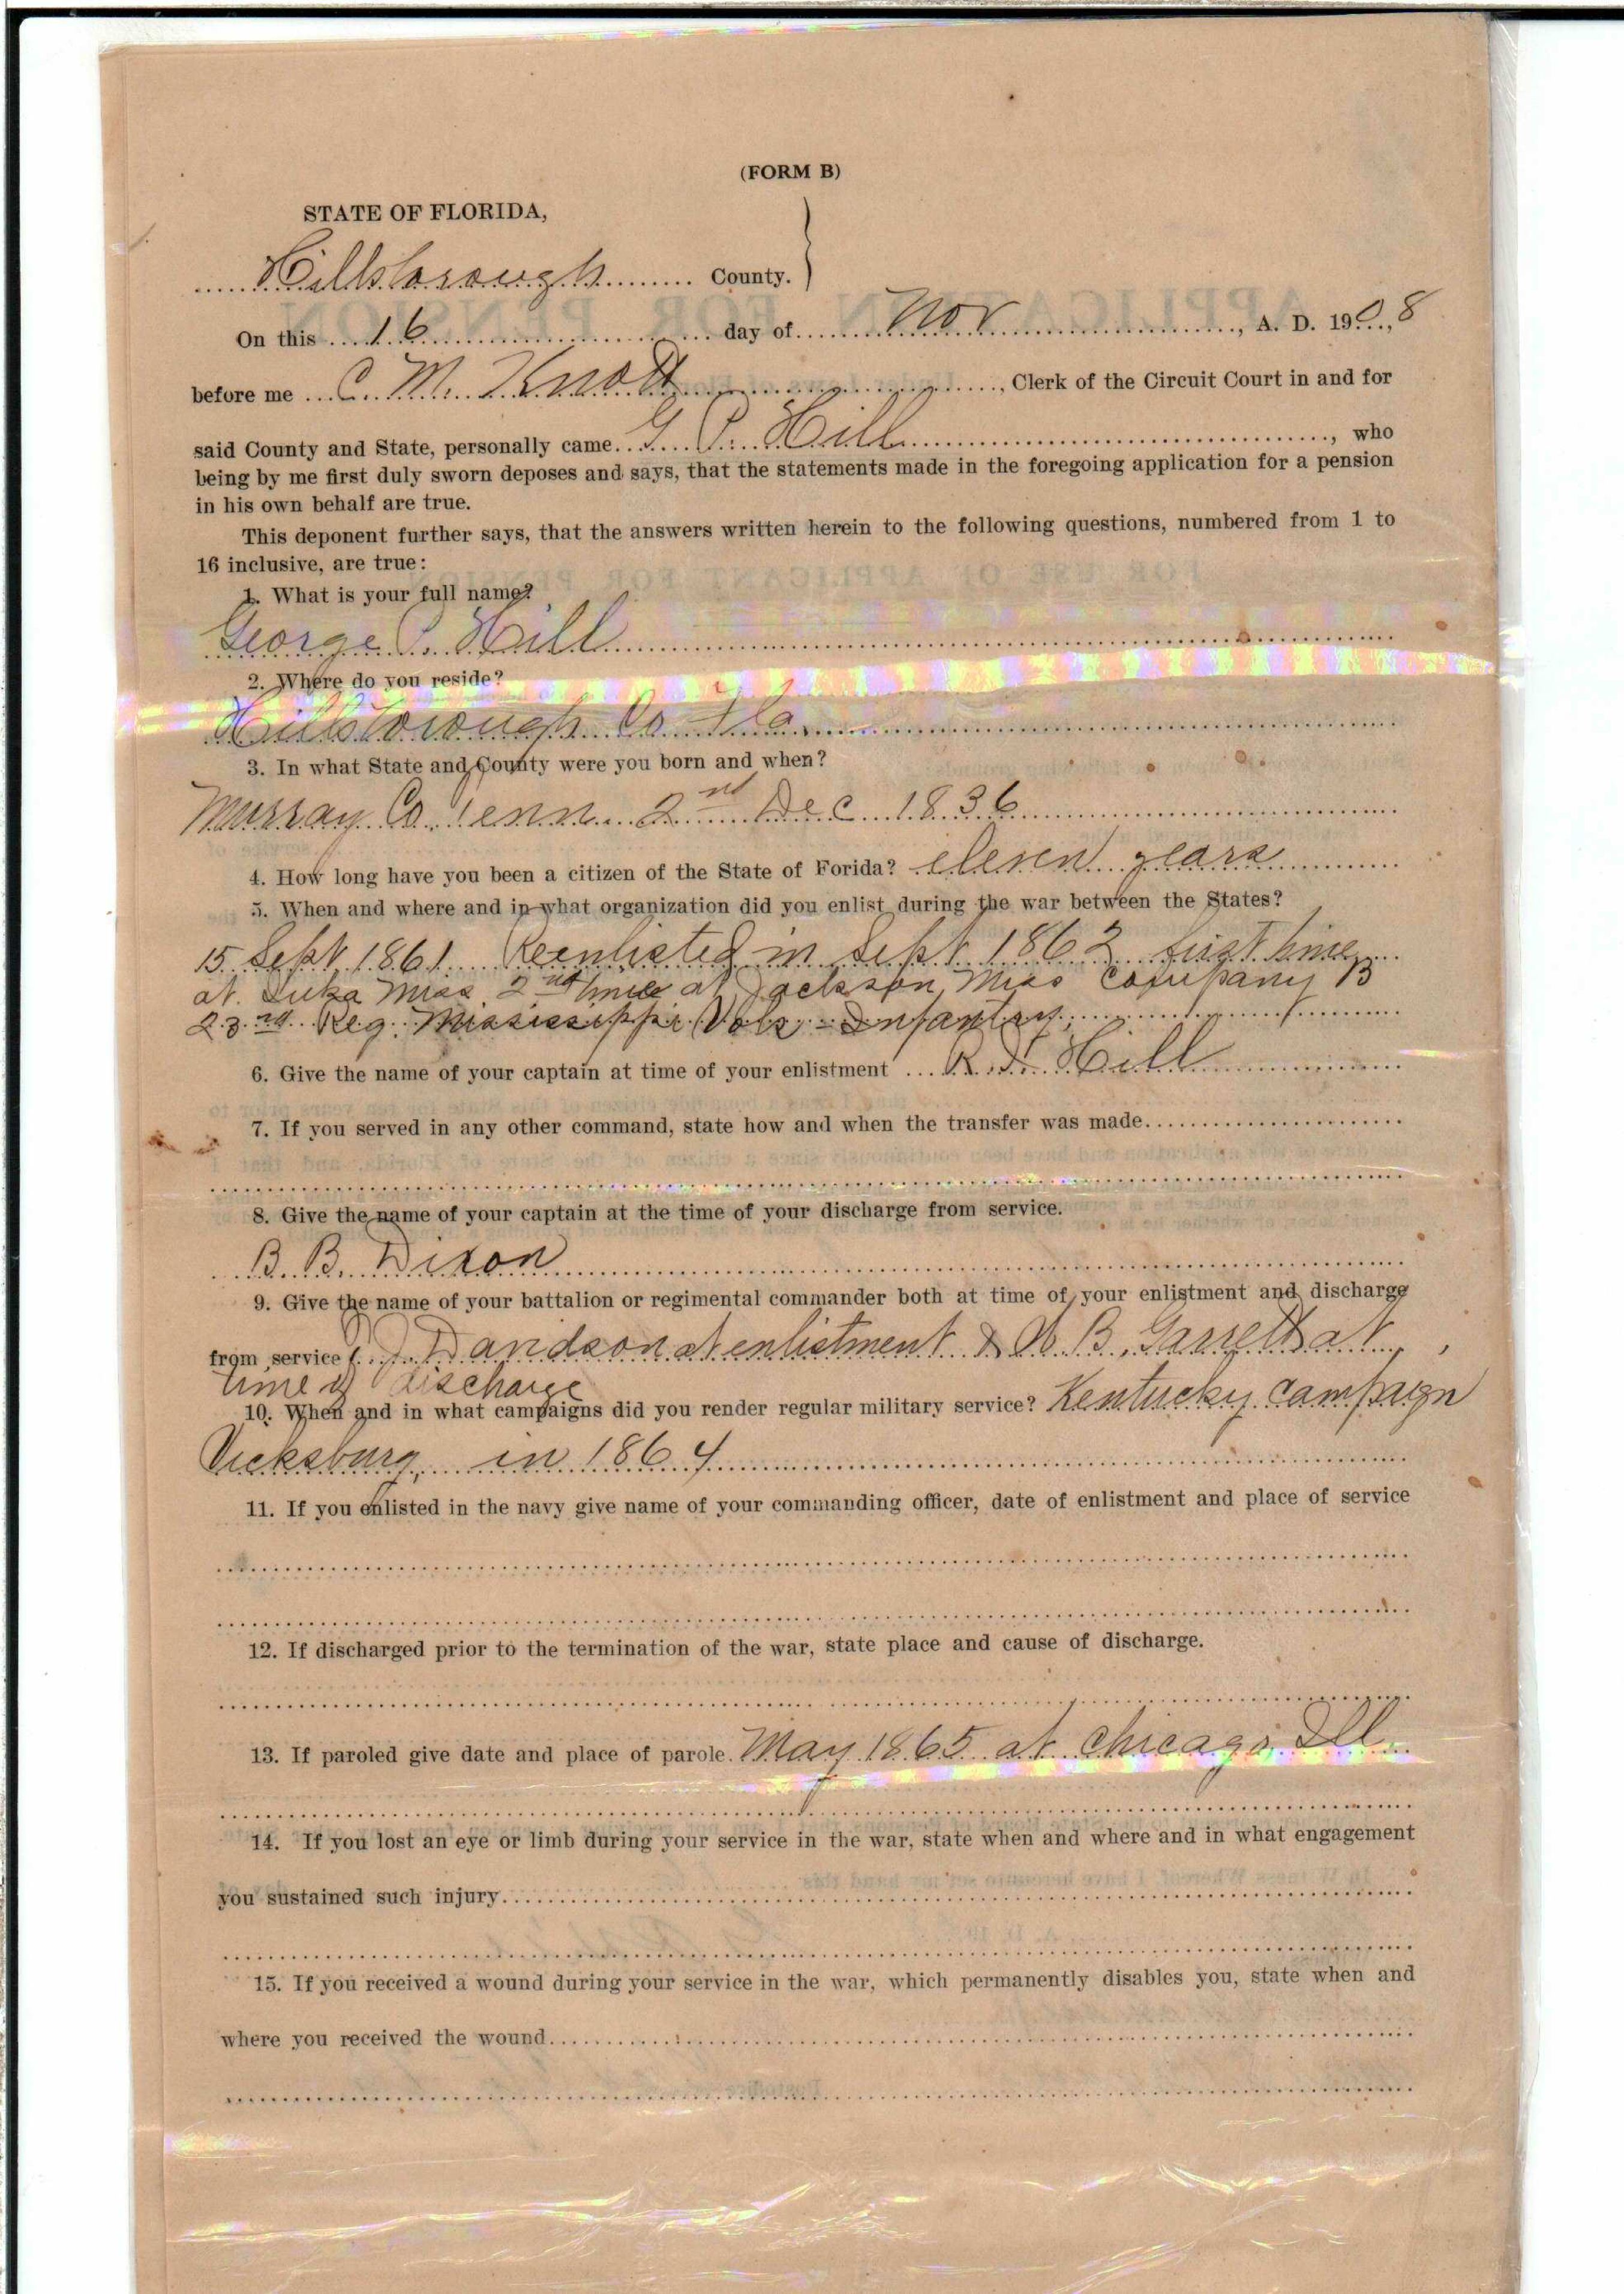 (FORM B)
STATE OF FLORIDA,
Hillsborough County.
On this 16 day of Nov, A. D. 190,8
before me C. M. Knott, Clerk of the Circuit Court in and for
said County and State, personally came G. P. Hill, who
being by me first duly sworn deposes and says, that the statements made in the foregoing application for a pension
in his own behalf are true.
This deponent further says, that the answers written herein to the following questions, numbered from 1 to
16 inclusive, are true:
1. What is your full name?
George P. Hill
2. Where do you reside?
Hillsborough Co Fla.
3. In what State and County were you born and when?
Murray Co. Tenn. 2nd Dec 1836
4. How long have you been a citizen of the State of Forida? eleven years
5. When and where and in what organization did you enlist during the war between the States?
15 Sept 1861 Reenlisted in Sept 1862 first time
at Iuka Miss 2nd time at Jackson, Miss Company B
23rd Reg. Mississippi Vols - Infantry
6. Give the name of your captain at time of your enlistment Hill
7. If you served in any other command, state how and when the transfer was made
8. Give the name of your captain at the time of your discharge from service.
B. B. Dixon
9. Give the name of your battalion or regimental commander both at time of your enlistment and discharge
from service Davidson at enlistment & B. Garrett at
time of discharge
10. When and in what campaigns did you render regular military service? Kentucky campaign
Vicksburg, in 1864
11. If you enlisted in the navy give name of your commanding officer, date of enlistment and place of service
12. If discharged prior to the termination of the war, state place and cause of discharge.
13. If paroled give date and place of parole. May 1865 at Chicago Ill
14. If you lost an eye or limb during your service in the war, state when and where and in what engagement
you sustained such injury
15. If you received a wound during your service in the war, which permanently disables you, state when and
where you received the wound